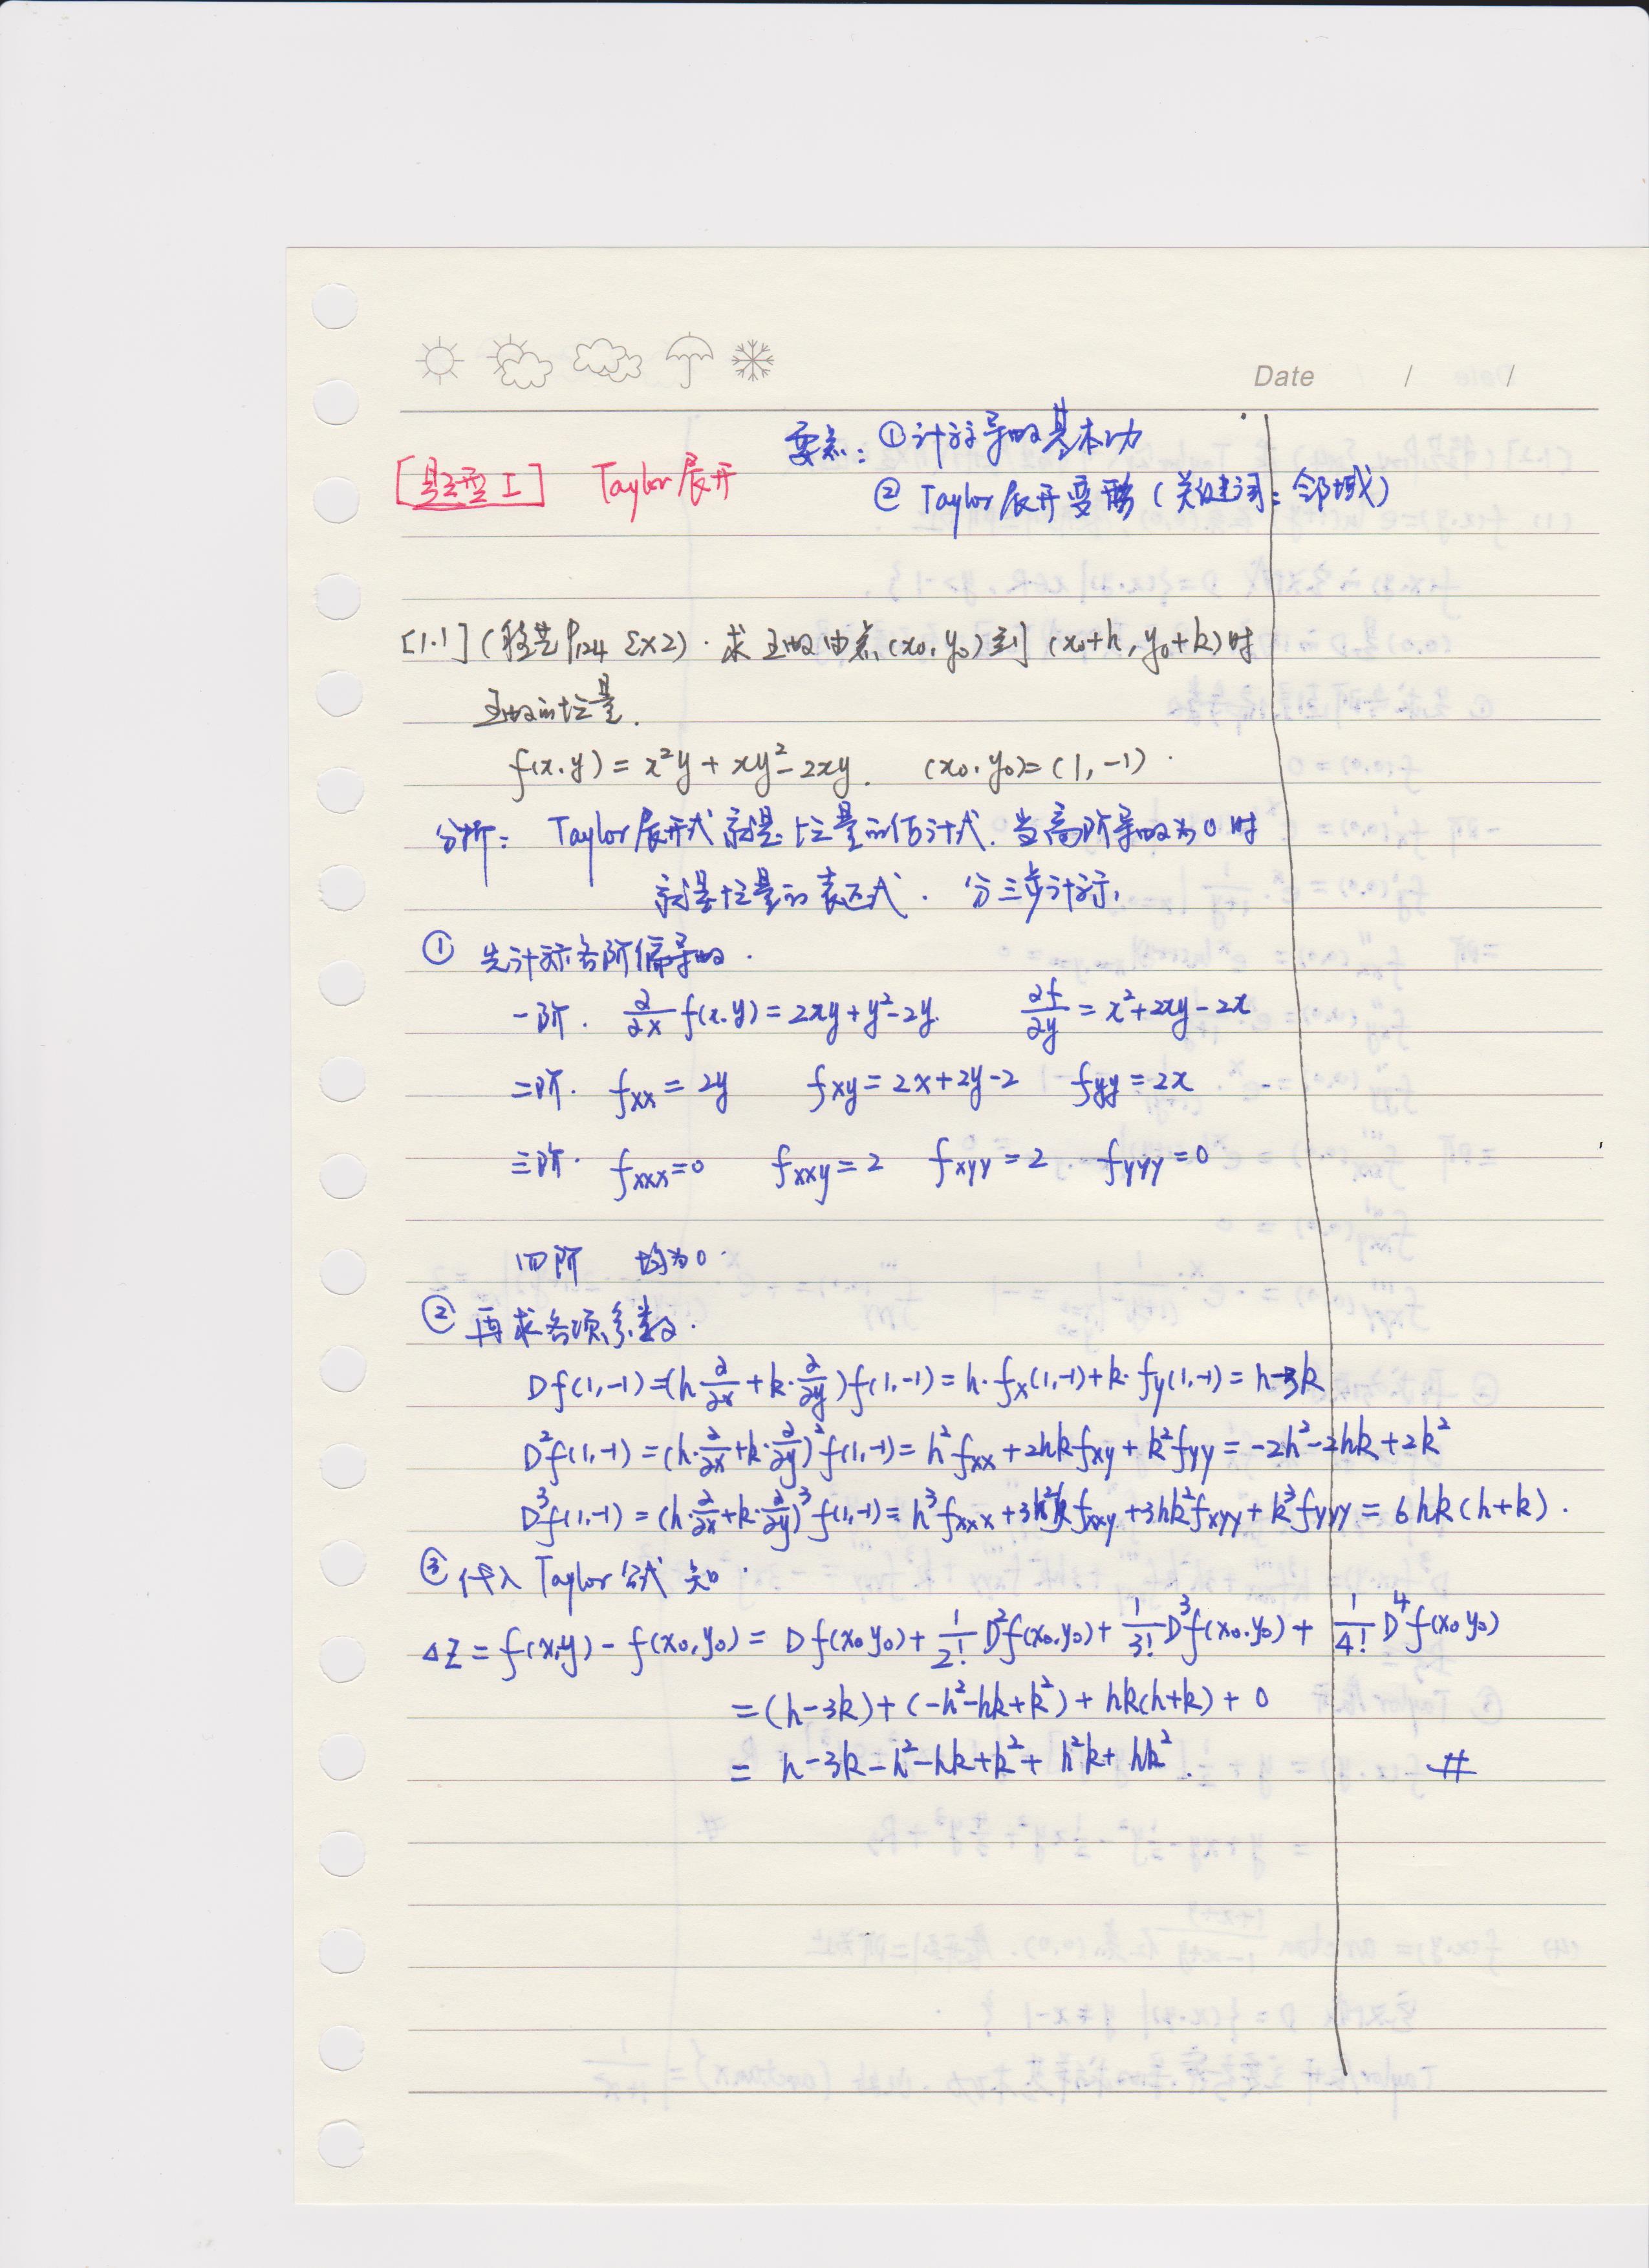 Date / /
要点：①计算导数基本功
[题型I] Taylor展开
② Taylor展开要酷（关键词：邻域）
[1.1] (P124 EX2). 求函数由点(x₀, y₀)到(x₀+h, y₀+k)时
函数的增量.
f(x.y) = x²y + xy² - 2xy. (x₀.y₀)=(1,-1).
分析： Taylor展开式就是增量的估计式. 当高阶导数为0时
就是增量的表达式. 分三步计算.
① 先计算各阶偏导数.
一阶. ∂/∂x f(x.y) = 2xy+y²-2y. ∂f/∂y = x²+2xy-2x
二阶. fxx = 2y fxy = 2x+2y-2 fyy = 2x
三阶. fxxx=0 fxxy=2 fxyy=2 fyyy=0
四阶 均为0.
② 再求各项系数.
Df(1,-1)=(h·∂/∂x+k·∂/∂y)f(1,-1)=h·fx(1,-1)+k·fy(1,-1)=h-3k
D²f(1,-1)=(h·∂/∂x+k·∂/∂y)²f(1,-1)=h²fxx+2hkfxy+k²fyy=-2h²-2hk+2k²
D³f(1,-1)=(h·∂/∂x+k·∂/∂y)³f(1,-1)=h³fxxx+3h²kfxxy+3hk²fxyy+k³fyyy=6hk(h+k).
③ 代入Taylor公式知.
△z=f(x,y)-f(x₀,y₀)=Df(x₀y₀)+1/2! D²f(x₀.y₀)+1/3! D³f(x₀.y₀)+1/4! D⁴f(x₀y₀)
=(h-3k)+(-h²-hk+k²)+hk(h+k)+0
= h-3k-h²-hk+k²+h²k+hk². #